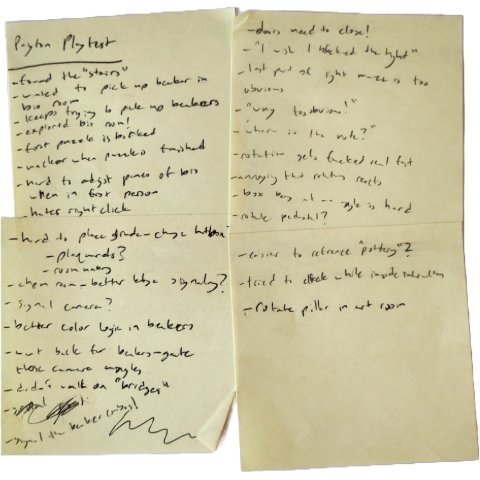 Payton Playtest
- found the "stairs"
- wanted to pick up beaker in
bio room
- keeps trying to pick up beakers
- explored bio room!
- first puzzle is blocked
- unclear when puzzles finished
- hard to adjust pieces of bio
when in first person
- hates right click
- hard to place grade - change hitbox
- plaquards?
- room names
- chem room - better edge signaling?
- signal camera?
- better color logic in beakers
- went back for beakers - gate
those camera angles
- didn't walk on "bridges"
- signal the beaker
- doors need to close!
- "I wish I blocked the light"
- last part of light maze is too
obvious
- "way too obvious!"
- "where is the note?"
- rotation gets fucked real fast
- annoying that rotation resets
- box keys at angle is hard
- rotate pedestal?
- easier to reference "pottery"?
- tried to while inside
- rotate pillar in art room